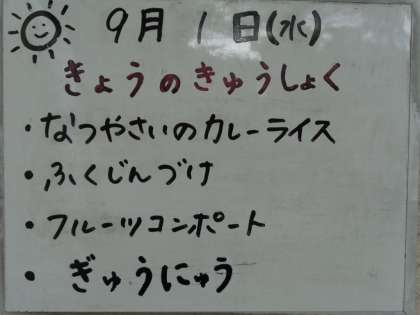 9月1日(水)
きょうのきゅうしょく
・なつやさいのカレーライス
・ふくじんづけ
・フルーツコンポート
・ぎゅうにゅう